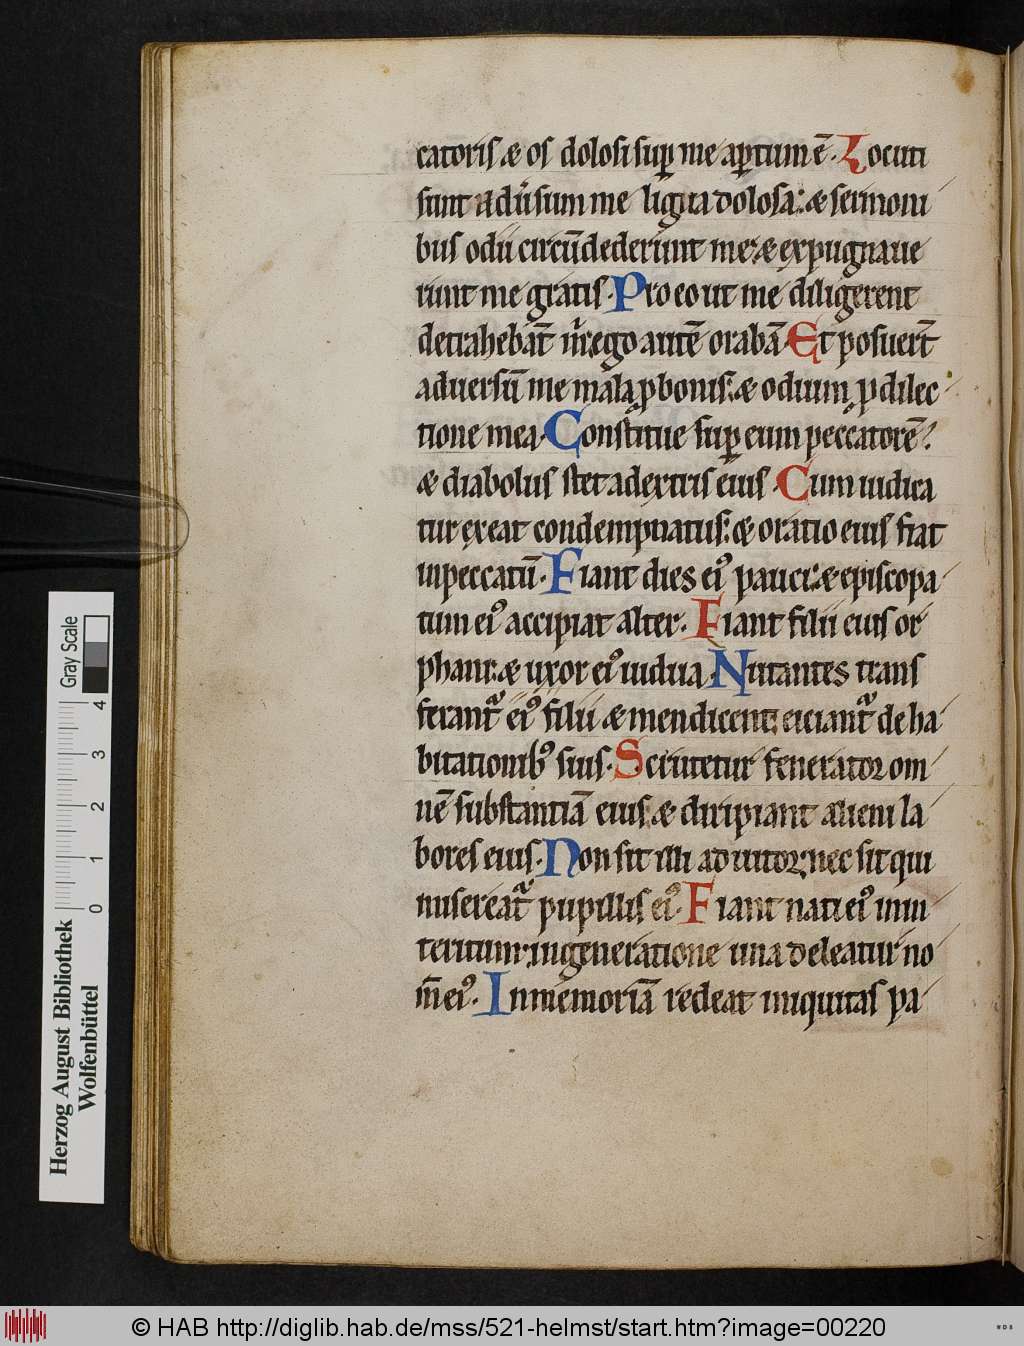 catoris & os dolosi sup̱ me ap̱tum ē. Locuti
sunt adũsum me ligua dolosa: & sermoni
bus odii circūdederunt me: & expugnaue
runt me gratis. Pro eo ut me diligerent
detrahebāt m̄. ego autē orabā. Et posuert̄
aduersū me mala ꝓ bonis: & odium ꝓ dilec
tione mea. Constitue sup̱ eum peccatorē:
& diabolus stet a dextris eius. Cum iudica
tur exeat condempnatus: & oratio eius fiat
in peccatū. Fiant dies eiꝰ pauci: & episcopa
tum eiꝰ accipiat alter. Fiant filii eius or
phani: & uxor eiꝰ uidua. Nutantes trans
ferant᷑ eiꝰ filii & mendicent: eiciant᷑ de ha
bitationibꝰ suis. Scrutetur fenerator om
nē substantiā eius: & diripiant alieni la
bores eius. Non sit illi adiutor: nec sit qui
misereat᷑ pupillis eiꝰ. Fiant nati eiꝰ in in
teritum: in generatione una deleatur no
m̄ eiꝰ. In memoriā redeat iniquitas pa
Gray Scale
0 1 2 3 4
Herzog August Bibliothek
Wolfenbüttel
© HAB http://diglib.hab.de/mss/521-helmst/start.htm?image=00220
WDB